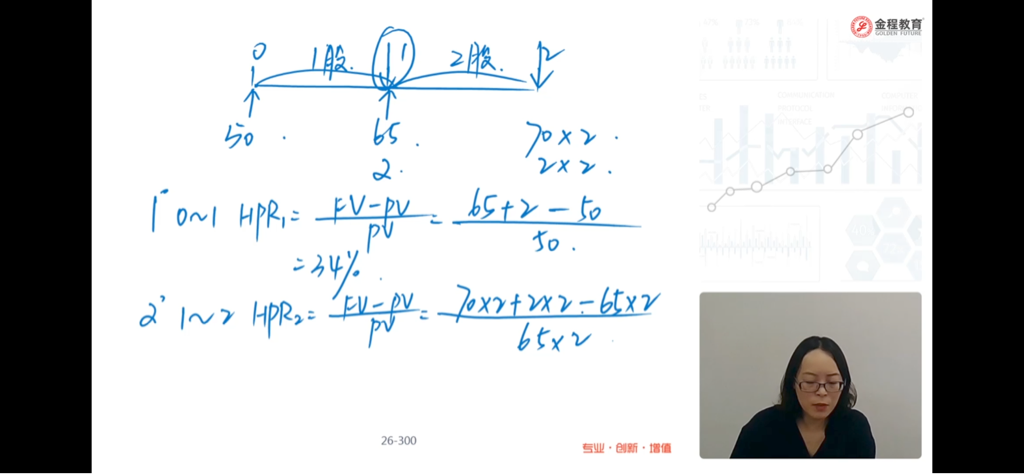 金程教育
GOLDEN FUTURE
0 1股. 1 2股. 2
50 . 65 . 70×2 .
2. 2×2 .
1° 0~1 HPR₁= FV-PV / PV = 65+2-50 / 50 .
=34% .
2° 1~2 HPR₂= FV-PV / PV = 70×2+2×2-65×2 / 65×2
26-300
专业·创新·增值